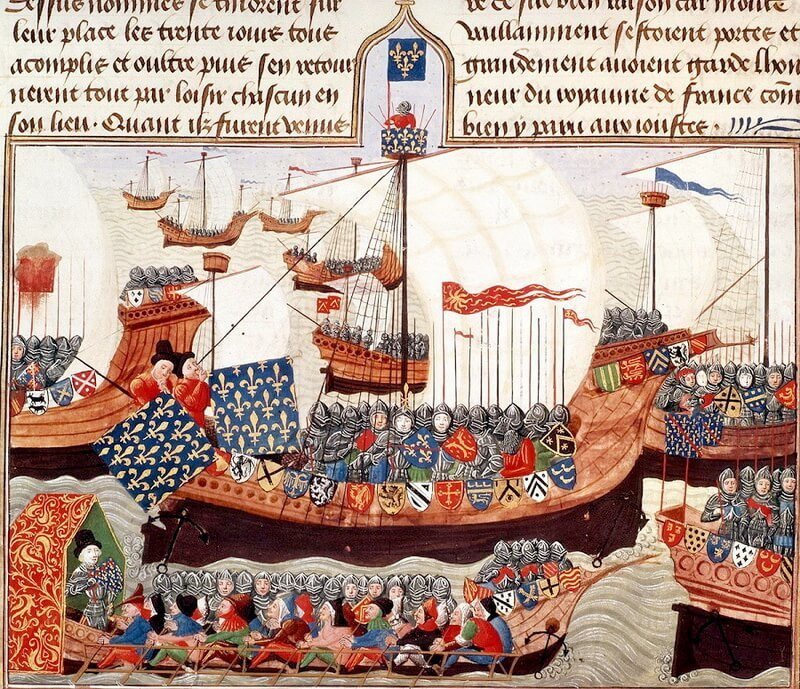 dessus nommes se tindrent sur
leur place les trente iours tous
acomplis et oultre puis sen retour
nerent tout par loisir chascun en
son lieu. Quant ilz furent venus
de ce fut bien raison car moult
vaillamment sestoient portes et
grandement auoient garde lhon
neur du royaume de france com
bien y paru aux ioustes